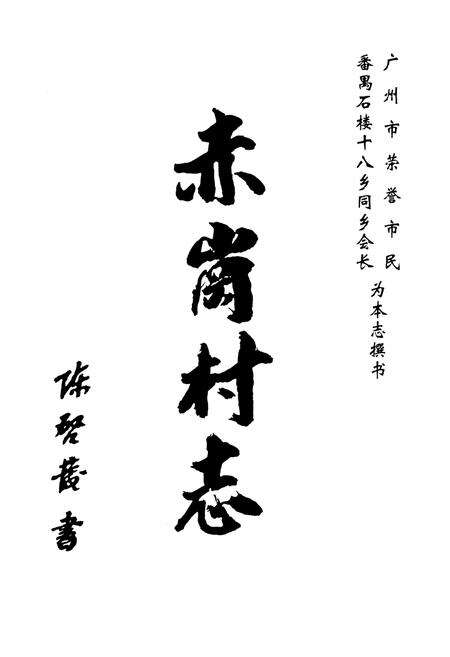 广州市荣誉市民
番禺石楼十八乡同乡会长
为本志撰书
赤岗村志
陈启书